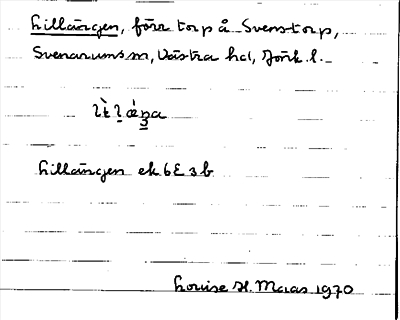 Lillängen, förr torp å Svenstorp,
Svenarums sn, Västra hd, Jönk. l.
Lillängen ek 6E3b
Louise H. Maas 1970